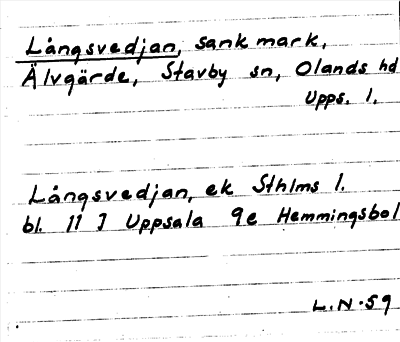 Långsvedjan, sank mark,
Älvgärde, Stavby sn, Olands hd
Upps. l.
Långsvedjan, ek Sthlms l.
bl. 11 I Uppsala 9e Hemmingsbol
L.N.59